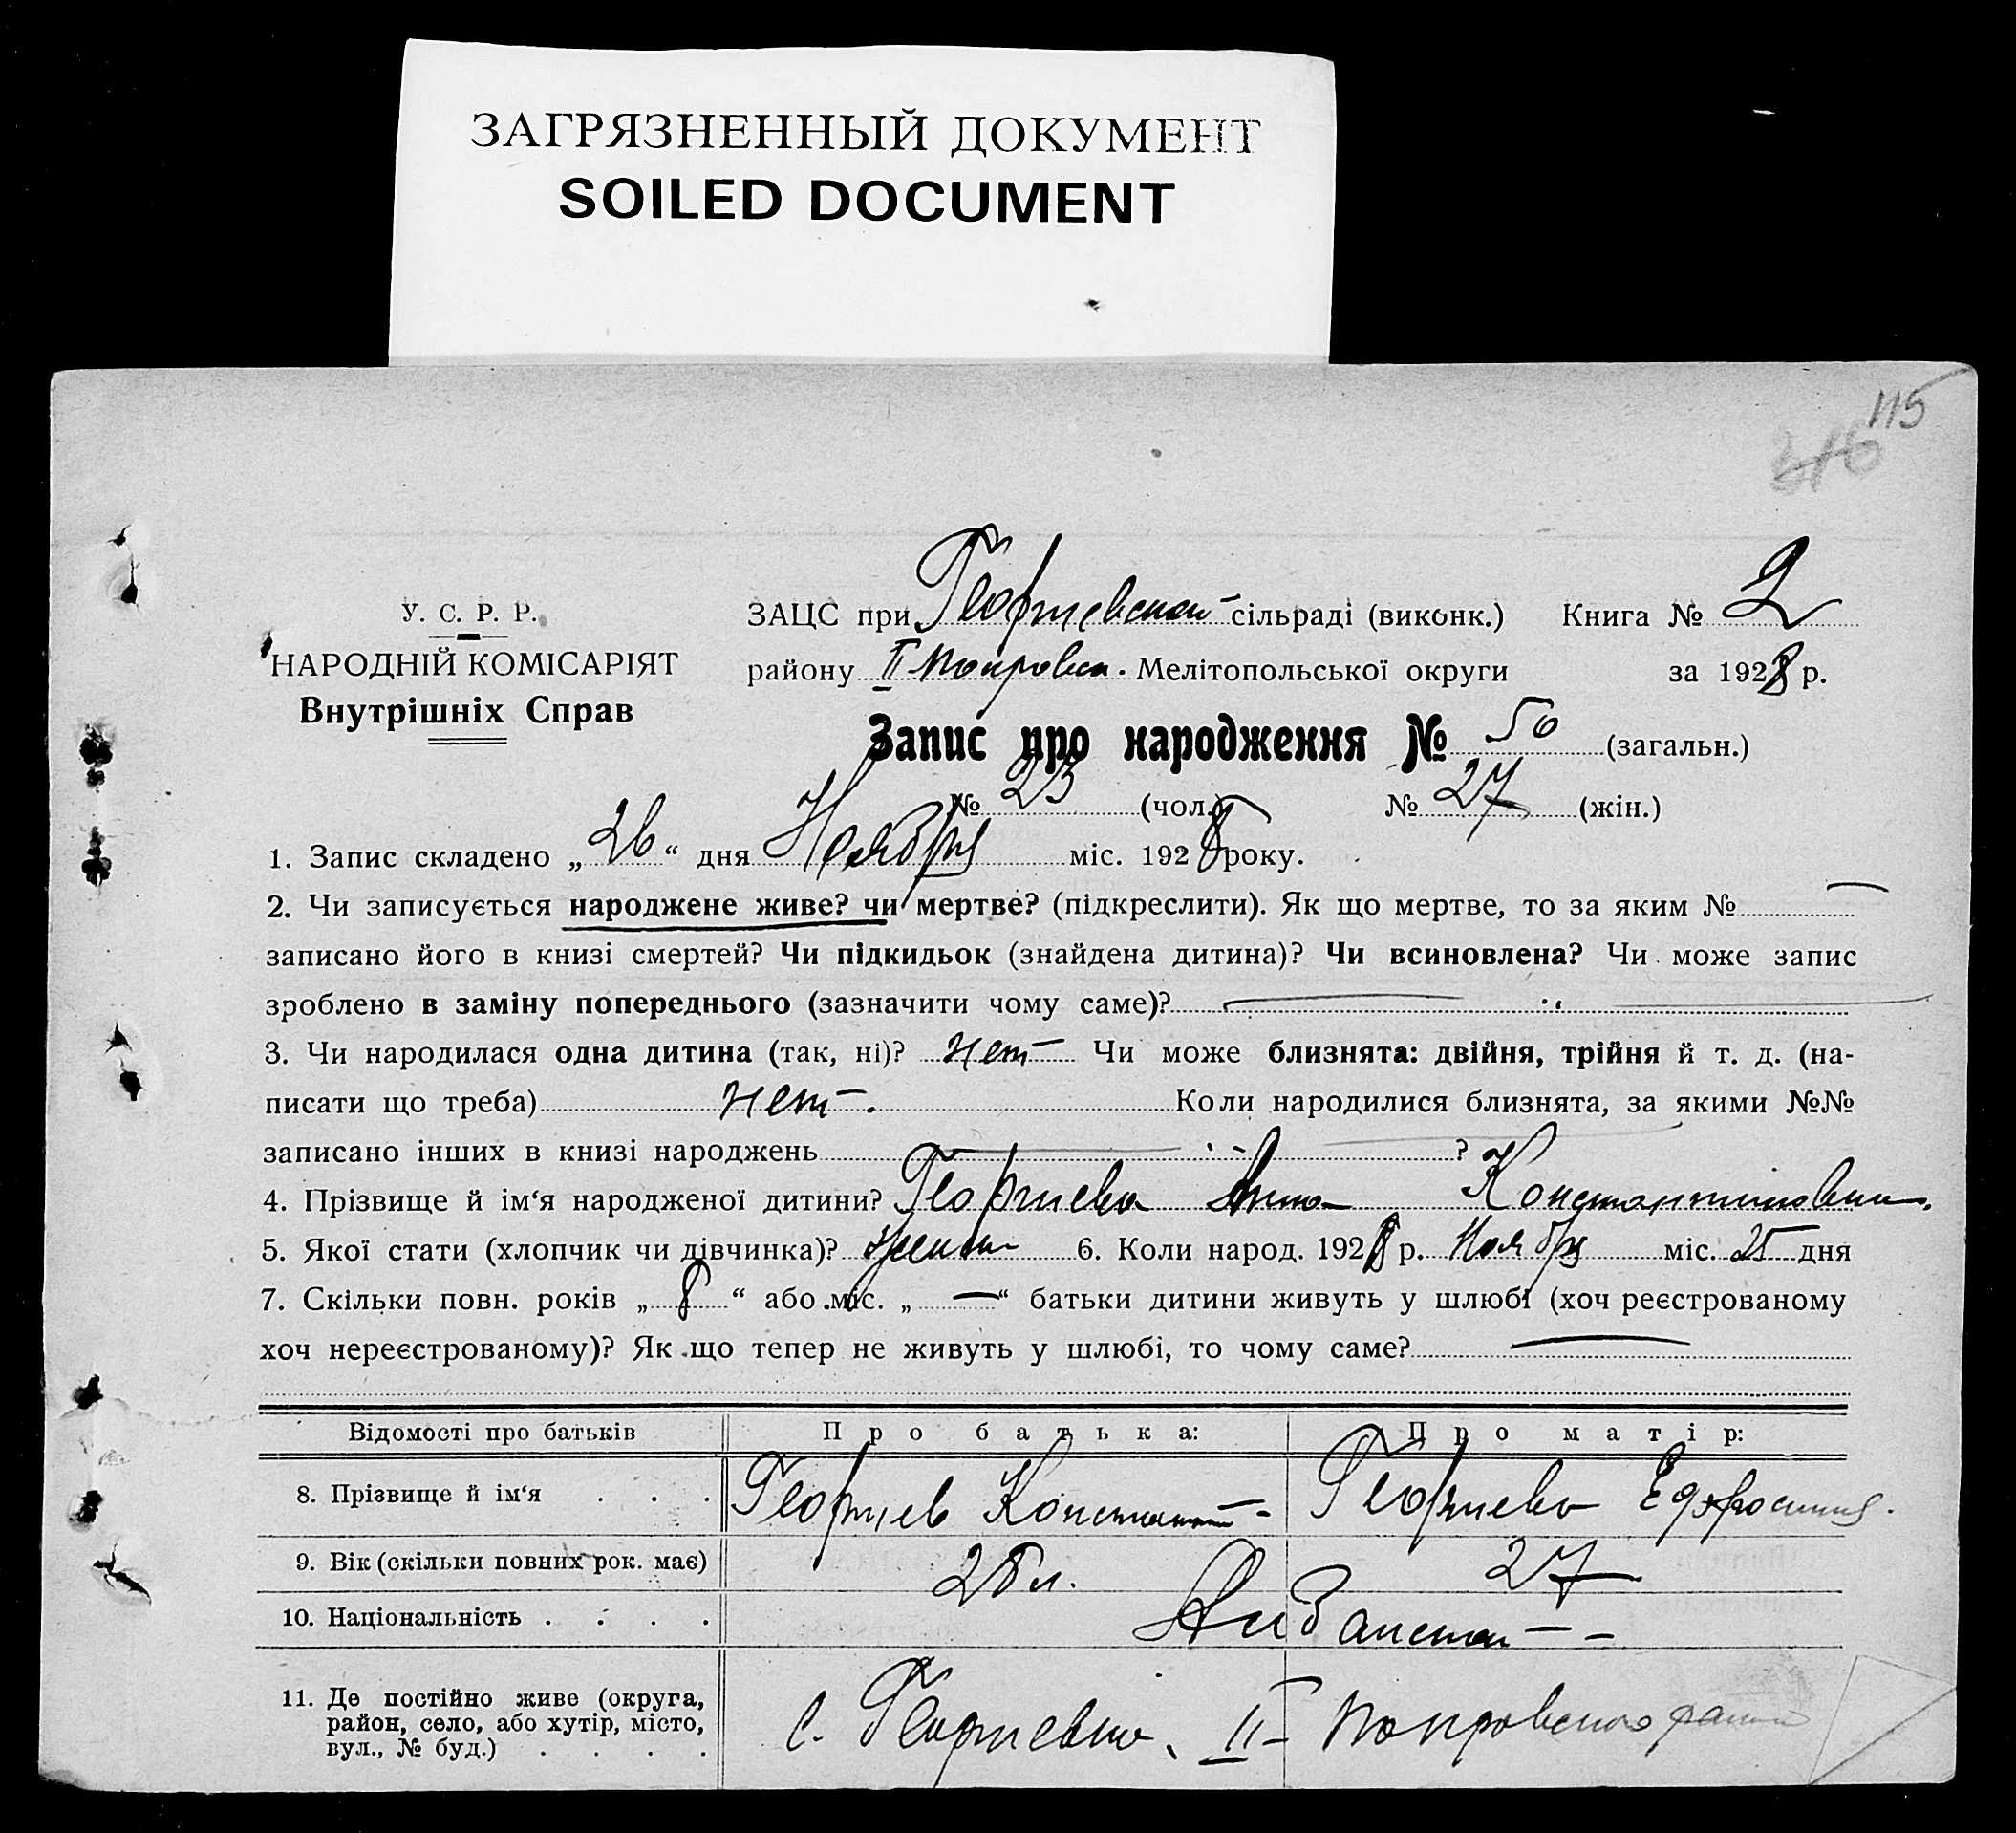 ЗАГРЯЗНЕННЫЙ ДОКУМЕНТ
SOILED DOCUMENT
115
316
У. С. Р. Р.
НАРОДНІЙ КОМІСАРІЯТ
Внутрішніх Справ
ЗАЦС при Георгиевской сільраді (виконк.) Книга № 2
району II Покровск. Мелітопольської округи за 1928 р.
Запис про народження № 50 (загальн.)
№ 23 (чол.) № 27 (жін.)
1. Запис складено „26“ дня Ноября міс. 1928 року.
2. Чи записується народжене живе? чи мертве? (підкреслити). Як що мертве, то за яким № —
записано його в книзі смертей? Чи підкидьок (знайдена дитина)? Чи всиновлена? Чи може запис
зроблено в заміну попереднього (зазначити чому саме)?
3. Чи народилася одна дитина (так, ні)? нет Чи може близнята: двійня, трійня й т. д. (на-
писати що треба) нет. Коли народилися близнята, за якими №№
записано інших в книзі народжень ?
4. Прізвище й ім‘я народженої дитини? Георгиева Анна Константиновна.
5. Якої стати (хлопчик чи дівчинка)? 6. Коли народ. 1928 р. Ноября міс. 25 дня
7. Скільки повн. років „8“ або міс. „—“ батьки дитини живуть у шлюбі (хоч реєстрованому
хоч нереєстрованому)? Як що тепер не живуть у шлюбі, то чому саме? —
Відомості про батьків Про батька: Про матір:
8. Прізвище й ім‘я . . . Георгиев Констант- Георгиева Ефросиния.
9. Вік (скільки повних рок. має) 28 л. 27
10. Національність . . . . Албанская - -
11. Де постійно живе (округа,
район, село, або хутір, місто,
вул., № буд.) . . . .
с. Георгиевка, II- Покровского района